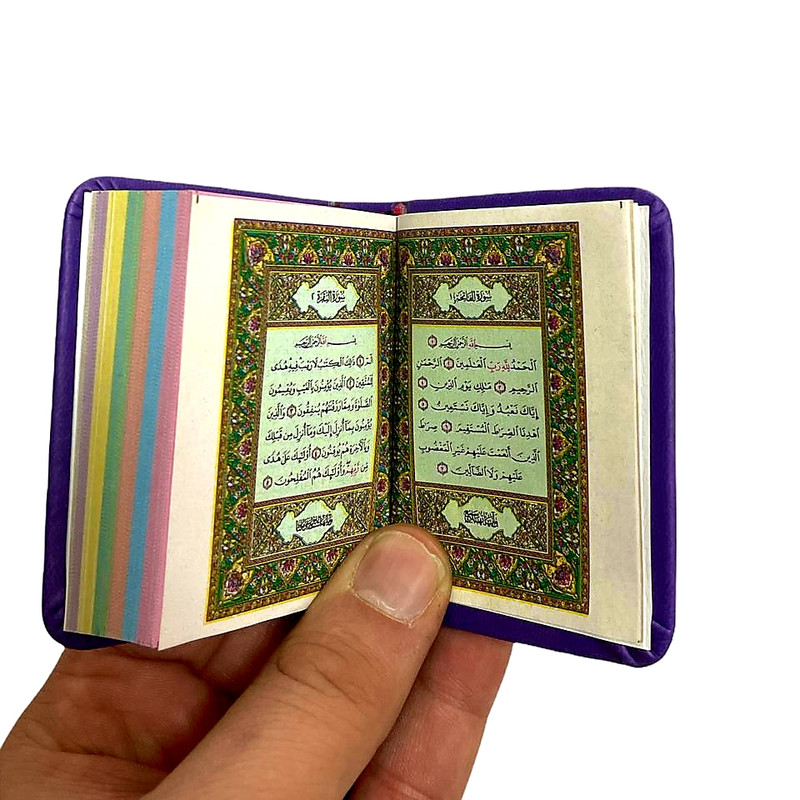 سُورَةُ الفَاتِحَةِ ١
بِسْمِ اللَّهِ الرَّحْمَٰنِ الرَّحِيمِ ١
الْحَمْدُ لِلَّهِ رَبِّ الْعَالَمِينَ ٢ الرَّحْمَٰنِ
الرَّحِيمِ ٣ مَالِكِ يَوْمِ الدِّينِ ٤
إِيَّاكَ نَعْبُدُ وَإِيَّاكَ نَسْتَعِينُ ٥
اهْدِنَا الصِّرَاطَ الْمُسْتَقِيمَ ٦ صِرَاطَ
الَّذِينَ أَنْعَمْتَ عَلَيْهِمْ غَيْرِ الْمَغْضُوبِ
عَلَيْهِمْ وَلَا الضَّالِّينَ ٧
سُورَةُ البَقَرَةِ ٢
بِسْمِ اللَّهِ الرَّحْمَٰنِ الرَّحِيمِ
الٓمٓ ١ ذَٰلِكَ الْكِتَٰبُ لَا رَيْبَ فِيهِ هُدًى
لِلْمُتَّقِينَ ٢ الَّذِينَ يُؤْمِنُونَ بِالْغَيْبِ وَيُقِيمُونَ
الصَّلَوٰةَ وَمِمَّا رَزَقْنَٰهُمْ يُنْفِقُونَ ٣ وَالَّذِينَ
يُؤْمِنُونَ بِمَا أُنْزِلَ إِلَيْكَ وَمَا أُنْزِلَ مِنْ قَبْلِكَ
وَبِالْآخِرَةِ هُمْ يُوقِنُونَ ٤ أُولَٰئِكَ عَلَىٰ هُدًى
مِنْ رَبِّهِمْ وَأُولَٰئِكَ هُمُ الْمُفْلِحُونَ ٥